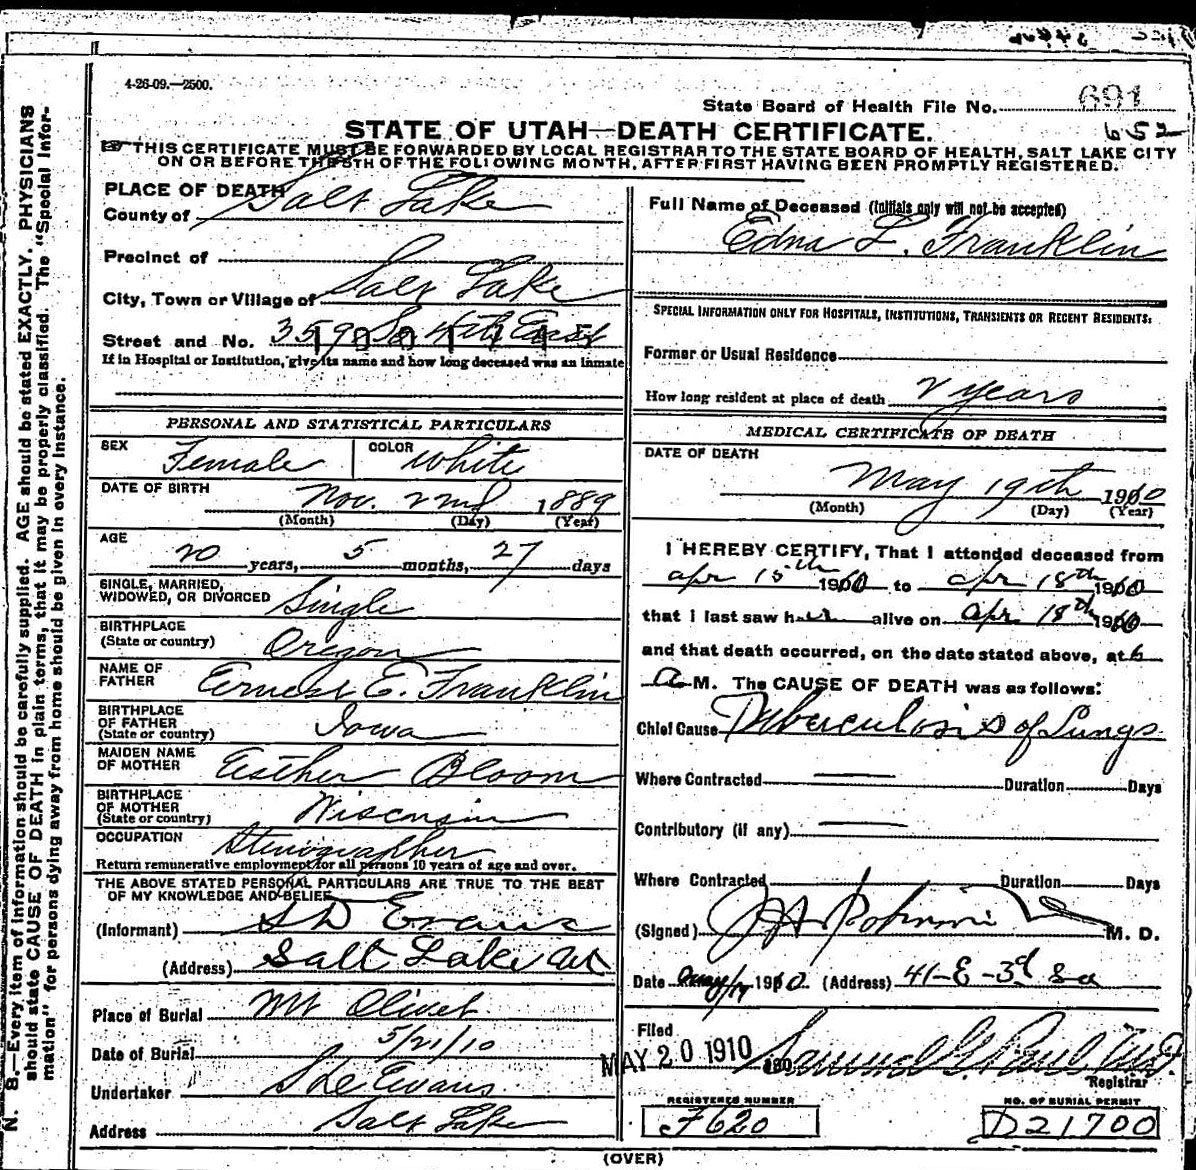 4-26-09.—2500.
State Board of Health File No. 691
652
STATE OF UTAH—DEATH CERTIFICATE.
THIS CERTIFICATE MUST BE FORWARDED BY LOCAL REGISTRAR TO THE STATE BOARD OF HEALTH, SALT LAKE CITY
ON OR BEFORE THE 5TH OF THE FOLLOWING MONTH, AFTER FIRST HAVING BEEN PROMPTLY REGISTERED.
N. B.—Every item of information should be carefully supplied. AGE should be stated EXACTLY. PHYSICIANS
should state CAUSE OF DEATH in plain terms, that it may be properly classified. The "Special Infor-
mation" for persons dying away from home should be given in every instance.
PLACE OF DEATH
County of Salt Lake
Precinct of
City, Town or Village of Salt Lake
Street and No. 359 So 4th East
If in Hospital or Institution, give its name and how long deceased was an inmate
PERSONAL AND STATISTICAL PARTICULARS
SEX Female COLOR White
DATE OF BIRTH Nov. 22nd 1889
(Month) (Day) (Year)
AGE 20 years, 5 months, 27 days
SINGLE, MARRIED,
WIDOWED, OR DIVORCED Single
BIRTHPLACE
(State or country) Oregon
NAME OF
FATHER Ernest E. Franklin
BIRTHPLACE
OF FATHER
(State or country) Iowa
MAIDEN NAME
OF MOTHER Esther Bloom
BIRTHPLACE
OF MOTHER
(State or country) Wisconsin
OCCUPATION Stenographer
Return remunerative employment for all persons 10 years of age and over.
THE ABOVE STATED PERSONAL PARTICULARS ARE TRUE TO THE BEST
OF MY KNOWLEDGE AND BELIEF
(Informant) S D Evans
(Address) Salt Lake Ut
Place of Burial Mt Olivet
Date of Burial 5/21/10
Undertaker Evans
Address Salt Lake
Full Name of Deceased (Initials only will not be accepted)
Edna L. Franklin
SPECIAL INFORMATION ONLY FOR HOSPITALS, INSTITUTIONS, TRANSIENTS OR RECENT RESIDENTS:
Former or Usual Residence
How long resident at place of death 2 years
MEDICAL CERTIFICATE OF DEATH
DATE OF DEATH
May 19th 1910
(Month) (Day) (Year)
I HEREBY CERTIFY, That I attended deceased from
apr 15th 1910 to apr 18th 1910
that I last saw her alive on apr. 18th 1910
and that death occurred, on the date stated above, at 6
a M. The CAUSE OF DEATH was as follows:
Chief Cause Tuberculosis of Lungs
Where Contracted Duration Days
Contributory (if any)
Where Contracted Duration Days
(Signed) M. D.
Date May 1910. (Address) 41-E-3d So
Filed
MAY 20 1910 190 Samuel G. Paul M.D.
Registrar
REGISTERED NUMBER
F620
NO. OF BURIAL PERMIT
D21700
(OVER)